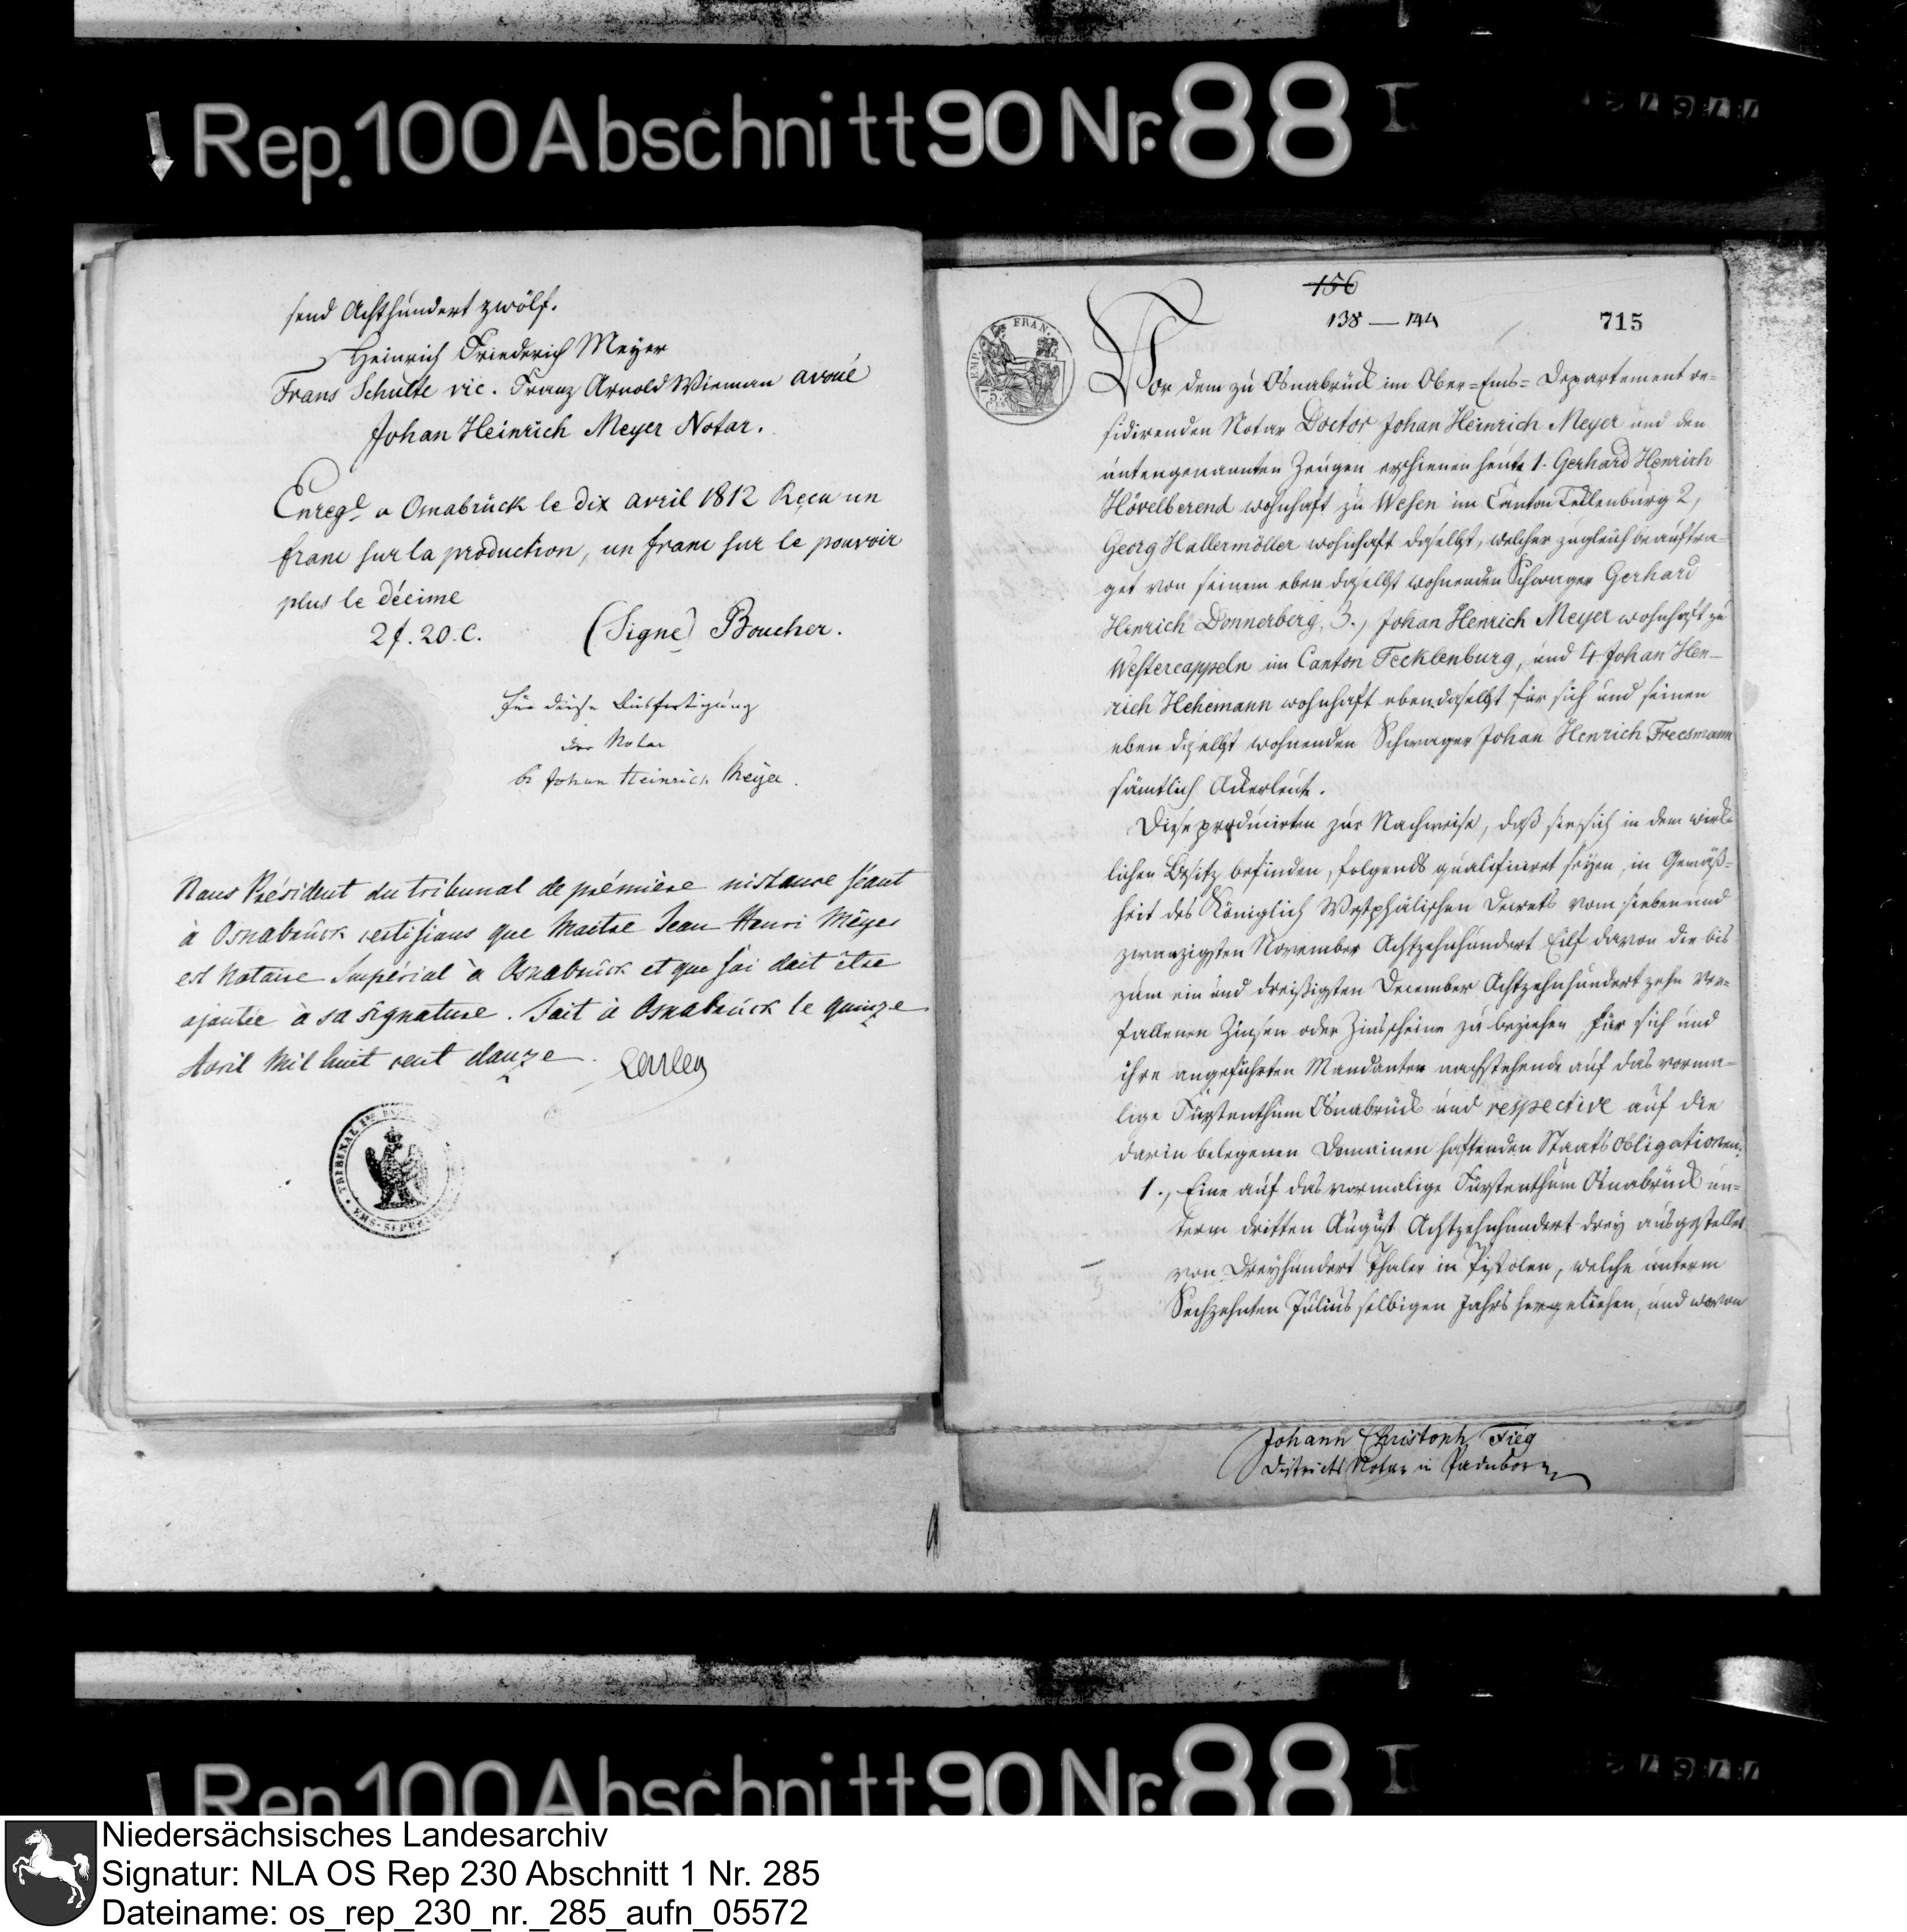 Rep. 100 Abschnitt 90 Nr. 88 I
send Achthundert zwölf.
Heinrich Friederich Meyer
Frans Schulte vic. Franz Arnold Wieman avoué
Johan Heinrich Meyer Notar.
Enregé a Osnabrück le dix avril 1812 Reçu un
franc sur la production, un franc sur le pouvoir
plus le décime
2f. 20. C. (Signé) Boucher.
für diese Ausfertigung
der Notar
Johan Heinrich Meyer.
Nous Président du tribunal de prémière instance séant
à Osnabrück certifions que Maitre Jean Henri Meyer
est Notaire Impérial à Osnabrück et que foi doit être
ajoutée à sa signature. Fait à Osnabrück le quinze
Avril Mil huit cent douze.
TRIBUNAL
156
138 — 144
715
EMP. FRAN.
75
Vor dem zu Osnabrück im Ober-Ems-Departement re-
sidirenden Notar Doctor Johan Heinrich Meyer und den
untengenannten Zeugen erschienen heute 1. Gerhard Henrich
Hövelberend wohnhaft zu Wesen im Canton Tecklenburg 2,
Georg Hallermöller wohnhaft daselbst, welcher zugleich beauftra-
get von seinem eben daselbst wohnenden Schwager Gerhard
Henrich Donnerberg, 3., Johan Henrich Meyer wohnhaft zu
Westercappeln im Canton Tecklenburg, und 4. Johan Hen-
rich Hehemann wohnhaft ebendaselbst für sich und seinen
eben daselbst wohnenden Schwager Johan Henrich Freesmann
sämtlich Ackerleute.
Diese producirten zur Nachweise, daß sie sich in dem wirk-
lichen Besitz befinden, folgends qualificiret seyen, in Gemäß-
heit des Königlich Westphälischen Decrets vom sieben und
zwanzigsten November Achtzehnhundert Eilf davon die bis
zum ein und dreißigsten December Achtzehnhundert zehn ver-
fallenen Zinsen oder Zinsscheine zu beziehen, für sich und
ihre angeführten Mandanten nachstehende auf das vorma-
lige Fürstenthum Osnabrück und respective auf die
darin belegenen Domainen haftenden Staats Obligationen:
1., Eine auf das vormalige Fürstenthum Osnabrück un-
term dritten August Achtzehnhundert drey ausgestellet
von Dreyhundert Thaler in Pistolen, welche unterm
Sechzehnten Julius selbigen Jahrs hergeliehen, und wovon
Johann Christoph Fieg
Districts Notar in Paderborn
Rep. 100 Abschnitt 90 Nr. 88 I
Niedersächsisches Landesarchiv
Signatur: NLA OS Rep 230 Abschnitt 1 Nr. 285
Dateiname: os_rep_230_nr._285_aufn_05572